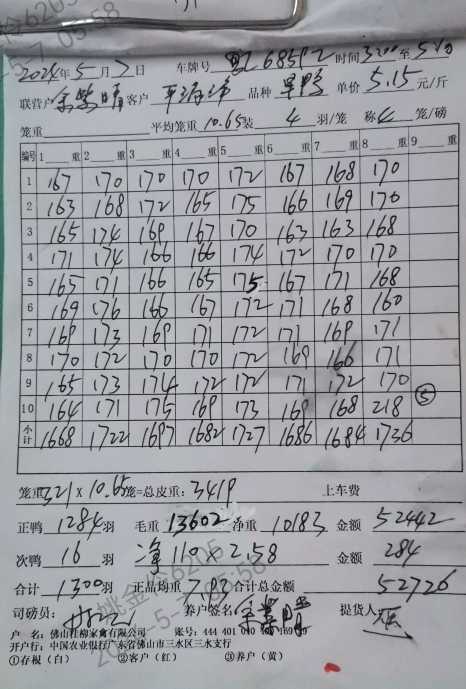 2024年5月7日 车牌号 时间3200至540
联营户 客户 品种 单价5.15元/斤
笼重 平均笼重10.65装 4 羽/笼 称4笼/磅
编号 1 重 2 重 3 重 4 重 5 重 6 重 7 重 8 重 9 重
1 167 170 170 170 172 167 168 170
2 163 168 172 165 175 166 169 170
3 165 174 169 167 170 163 163 168
4 171 174 166 166 174 172 170 170
5 165 171 166 165 175 167 171 168
6 169 176 166 167 172 171 168 160
7 169 173 169 171 172 171 169 171
8 170 172 170 170 172 169 166 171
9 165 173 174 172 172 171 172 170
10 164 171 175 169 173 169 168 218 ⑤
小计 1668 1722 1697 1682 1727 1686 1684 1736
笼重321×10.65笼=总皮重:3419 上车费
正鸭1284羽 毛重13602净重10183金额52442
次鸭16羽 净110 2.58 金额284
合计1300羽 正品均重7.93合计总金额52726
司磅员: 养户签名: 提货人:
户 名:佛山桂柳家禽有限公司 账号:444 401 010 400 169 69
开户行:中国农业银行广东省佛山市三水区三水支行
①存根(白) ②客户(红) ③养户(黄)